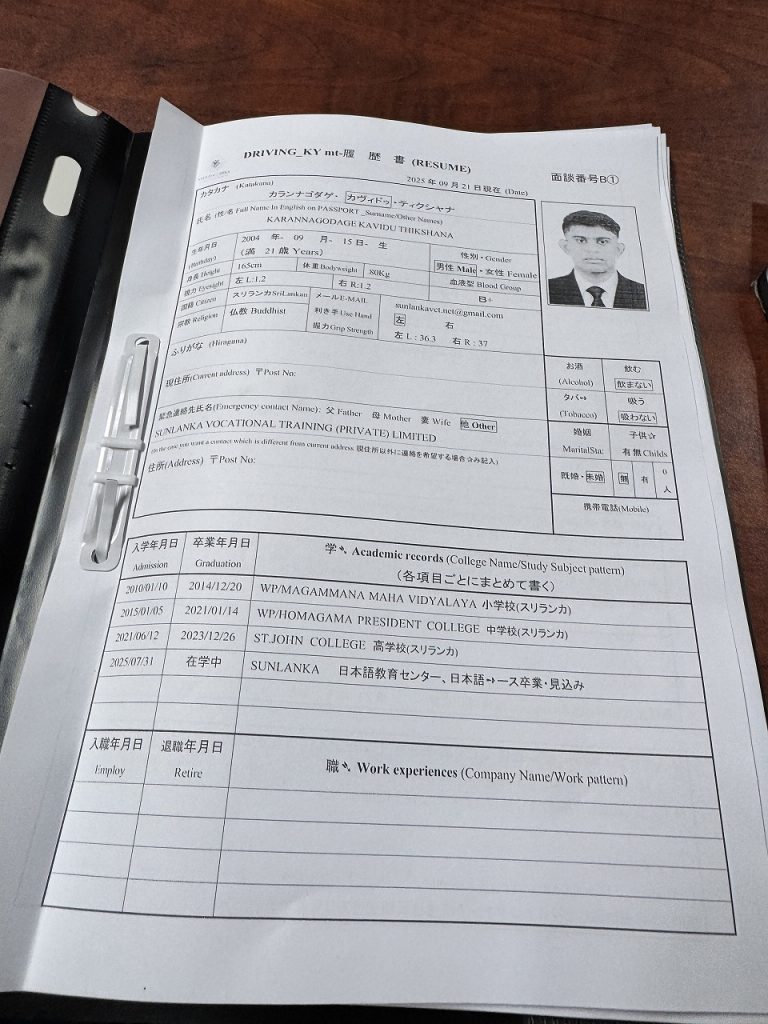 DRIVING_KY mt-履 歴 書 (RESUME)
2025 年 09 月 21 日現在 (Date)
面談番号B①
カタカナ (Katakana) カランナゴダゲ・カヴィドゥ・ティクシャナ
氏名 (姓/名 Full Name In English on PASSPORT _Surname/Other Names)
KARANNAGODAGE KAVIDU THIKSHANA
生年月日 (Birthday) 2004 年- 09 月- 15日- 生
(満 21 歳 Years)
性別・Gender
男性 Male・女性 Female
身長 Height 165cm 体重 Bodyweight 80Kg 血液型 Blood Group
視力 Eyesight 左 L:1.2 右 R:1.2 B+
国籍 Citizen スリランカ SriLankan メール E-MAIL sunlankavct.net@gmail.com
宗教 Religion 仏教 Buddhist 利き手 Use Hand 左 右
握力 Grip Strength 左 L : 36.3 右 R : 37
ふりがな (Hiragana)
現住所(Current address) 〒Post No:
緊急連絡先氏名(Emergency contact Name): 父 Father 母 Mother 妻 Wife 他 Other
SUNLANKA VOCATIONAL TRAINING (PRIVATE) LIMITED
(In the case you want a contact which is different from current address 現住所以外に連絡を希望する場合☆み記入)
住所(Address) 〒Post No:
お酒 (Alcohol) 飲む 飲まない
タバ↔ (Tobacco) 吸う 吸わない
婚姻 MaritalSta: 子供☆ 有 無 Childs
既婚・未婚 無 有 0 人
携帯電話(Mobile)
入学年月日 Admission 卒業年月日 Graduation 学➷ Academic records (College Name/Study Subject pattern)
(各項目ごとにまとめて書く)
2010/01/10 2014/12/20 WP/MAGAMMANA MAHA VIDYALAYA 小学校(スリランカ)
2015/01/05 2021/01/14 WP/HOMAGAMA PRESIDENT COLLEGE 中学校(スリランカ)
2021/06/12 2023/12/26 ST.JOHN COLLEGE 高学校(スリランカ)
2025/07/31 在学中 SUNLANKA 日本語教育センター、日本語↔ース卒業・見込み
入職年月日 Employ 退職年月日 Retire 職➷ Work experiences (Company Name/Work pattern)